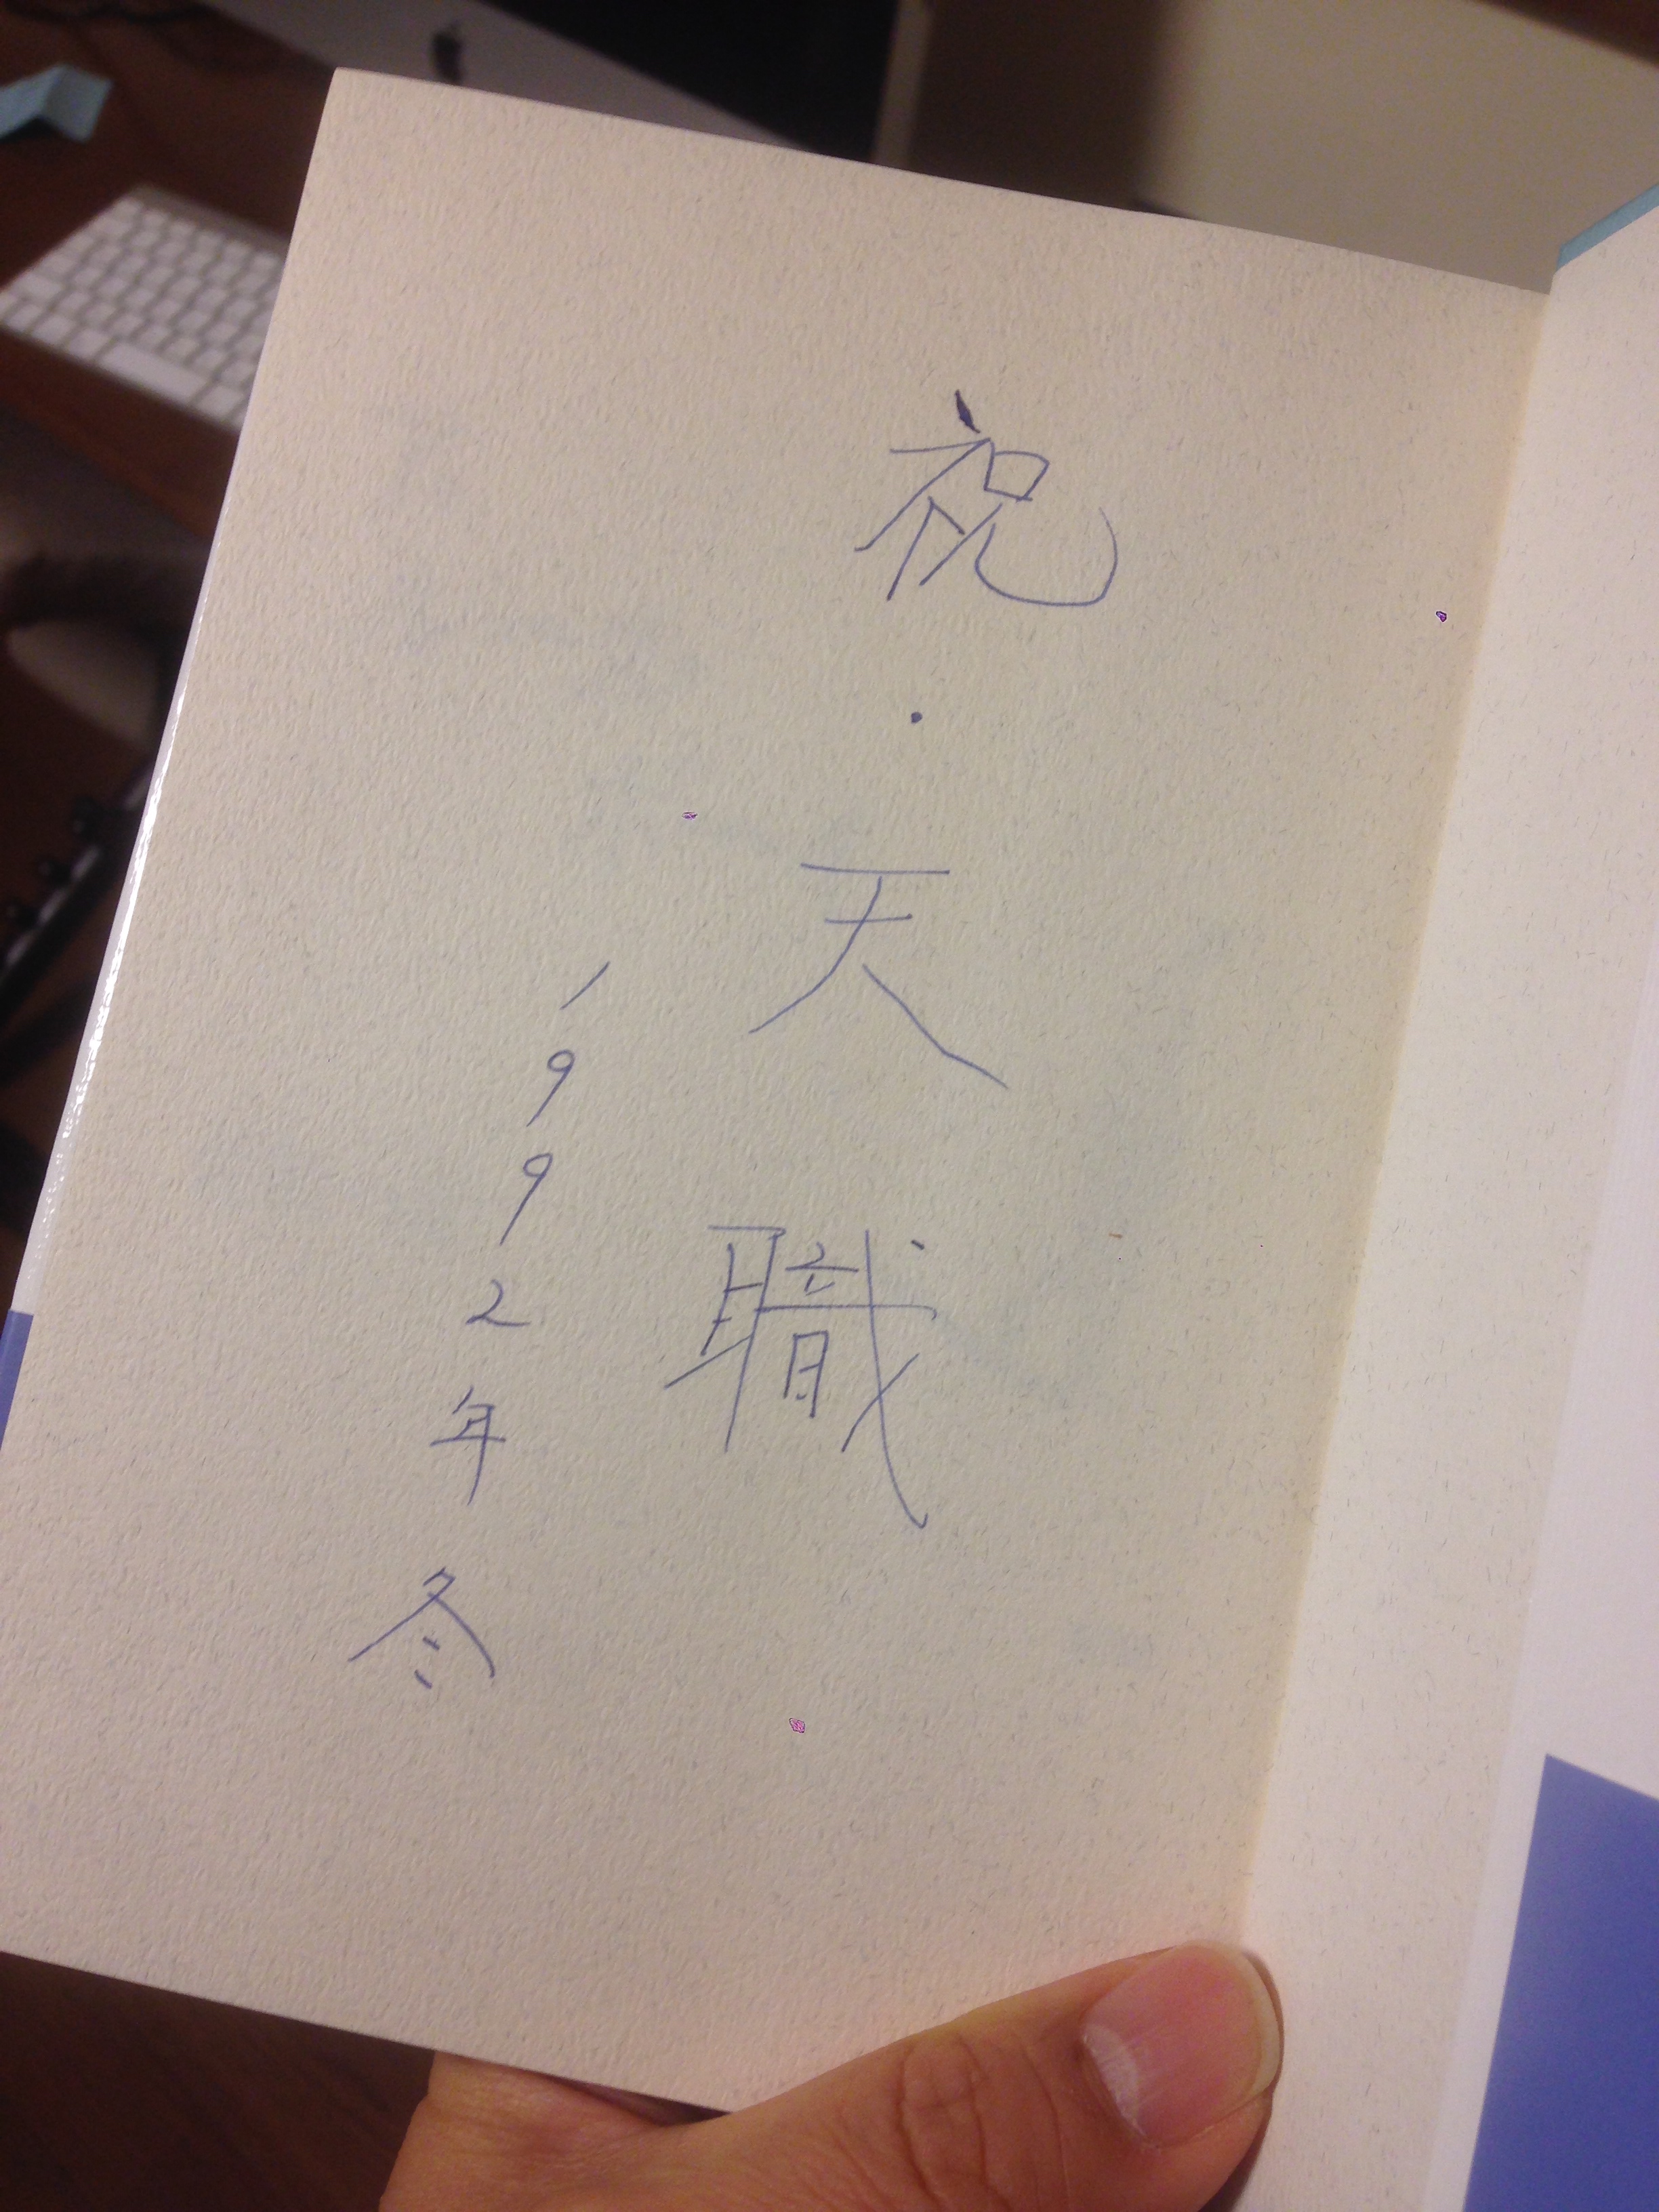 祝・天職
1992年冬